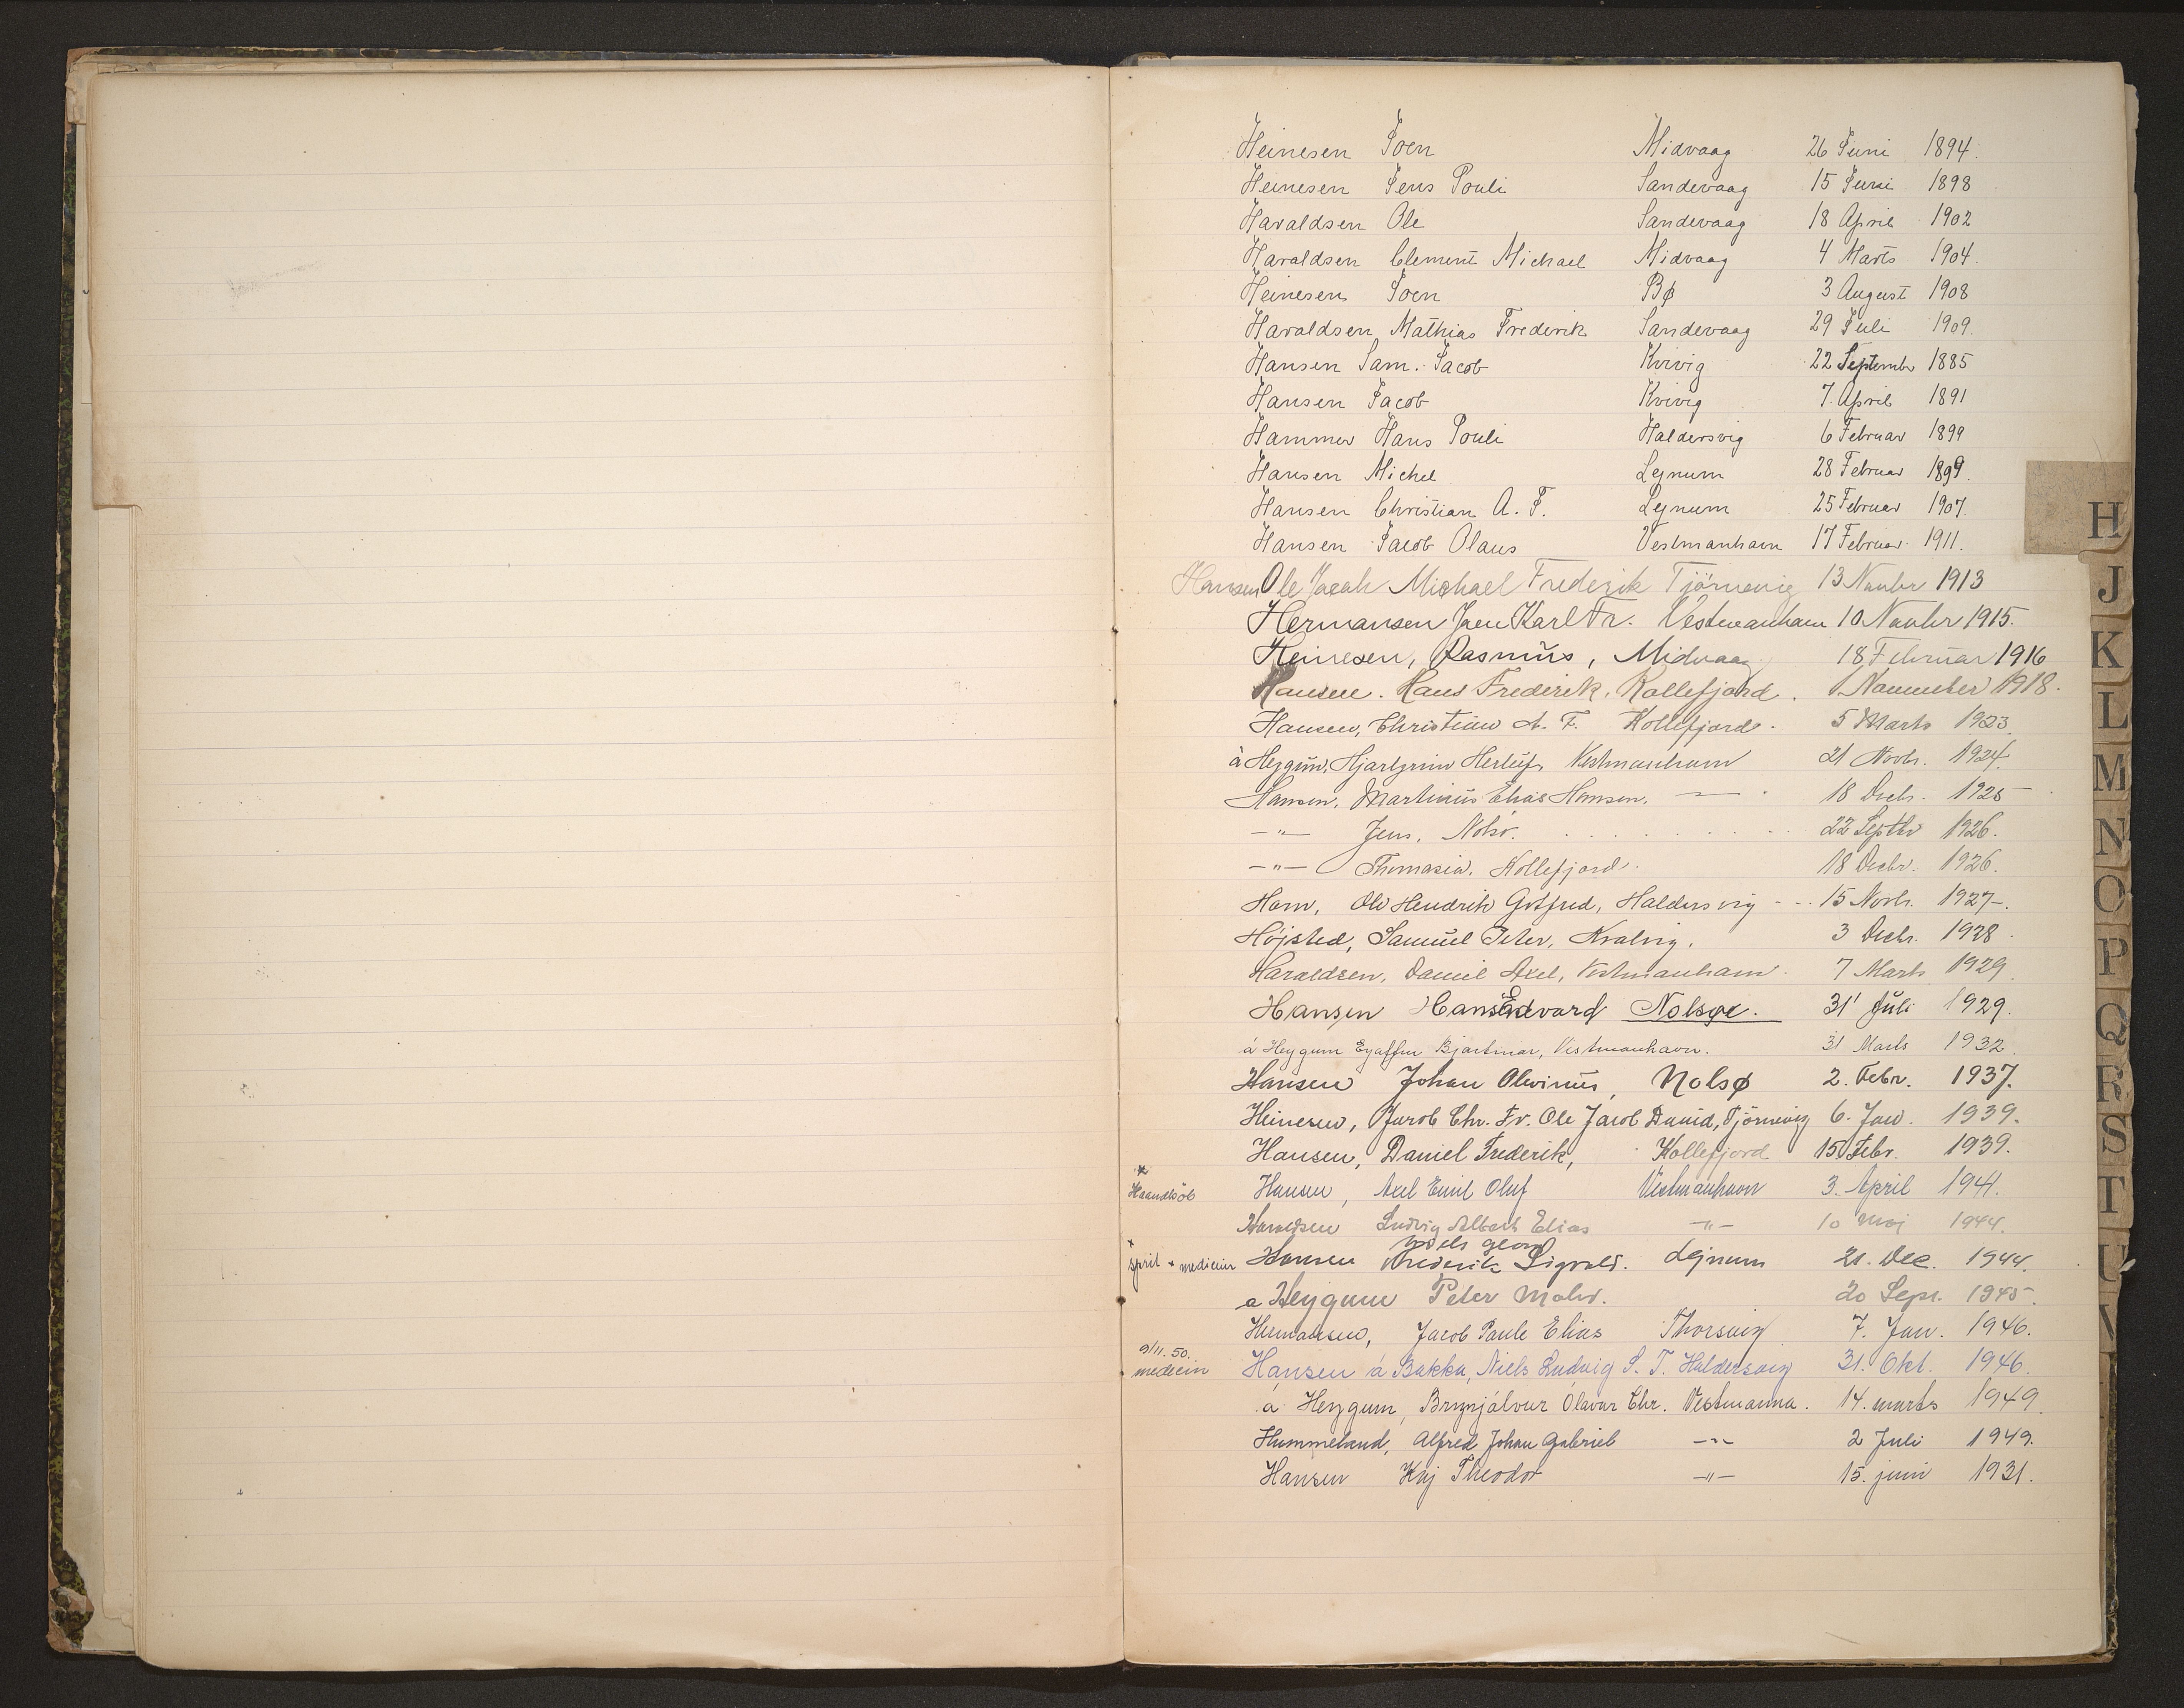 Heinesen Joen Midvaag 26 Juni 1894.
Heinesen Jens Pouli Sandevaag 15 Juni 1898
Haraldsen Ole Sandevaag 18 April 1902
Haraldsen Clement Michael Midvaag 4 Marts 1904.
Heinesen Joen Bø 3 August 1908
Haraldsen Mathias Frederik Sandevaag 29 Juli 1909.
Hansen Sam. Jacob Kvivig 22 Septembr 1885
Hansen Jacob Kvivig 7. April 1891
Hammer Hans Pouli Haldersvig 6 Februar 1899
Hansen Michel Lejnum 28 Februar 1899.
Hansen Christian A. F. Lejnum 25 Februar 1907.
Hansen Jacob Olaus Vestmanhavn 17 Februar 1911.
Hansen Ole Jacob Michael Frederik Tjörnevig 13 Novbr 1913
Hermansen Joen Karl Fr. Vestmanhavn 10 Novbr 1915.
Heinesen, Rasmus, Midvaag 18 Februar 1916
Hansen. Hans Frederik, Kollefjord. 1 November 1918.
Hansen, Christian A. F. Kollefjord. 5 Marts 1923.
à Heygum, Hjartgrim Herluf, Vestmanhavn 21 Novbr. 1924.
Hansen, Martinus Elias Hansen, — 18 Decbr. 1925
—"— Jens, Nolsö. 22 Septbr 1926.
—"— Thomasia, Kollefjord. 18 Decbr. 1926.
Ole Hendrik Gotfred, Haldersvig -- 15 Novbr. 1927.
Højsted, Samuel Peter, Kvalvig. 3 Decbr. 1928.
Haraldsen, Daniel Axel, Vestmanhavn. 7 Marts 1929.
Hansen Hans Edvard Nolsøe. 31' Juli 1929.
á Heygum Bjartmar, Vestmanhavn. 31 Marts 1932.
Hansen Johan Olivinus, Nolsø 2. Febr. 1937.
Heinesen, Jacob Chr. Fr. Ole Jacob David, Tjörnevig 6. Jan. 1939.
Hansen, Daniel Frederik, Kollefjord 15 Febr. 1939.
x
Haandköb Hansen, Axel Emil Oluf Vestmanhavn 3. April 1941.
Ludvig Albert Elias —"— 10 Maj 1944.
Niels Georg
x
sprit + medicin Hansen Frederik Sigvald. Lejnum 21. Dec. 1944.
a Heygum Peter Mohr. 20 Sept. 1945.
Hermansen, Jacob Paule Elias Thorsvig 7. Jan. 1946.
9/11. 50.
medicin Hansen á Bakka, Niels Ludvig S. T. Haldersvig 31. Okt. 1946.
á Heygum, Brynjálvur Ólavur Chr. Vestmanna. 14. marts 1949.
Hummeland, Alfred Johan Gabriel —"— 2 Juli 1949.
Hansen Kaj Theodor —"— 15. juni 1931.
H
J
K
L
M
N
O
P
Q
R
S
T
U
V